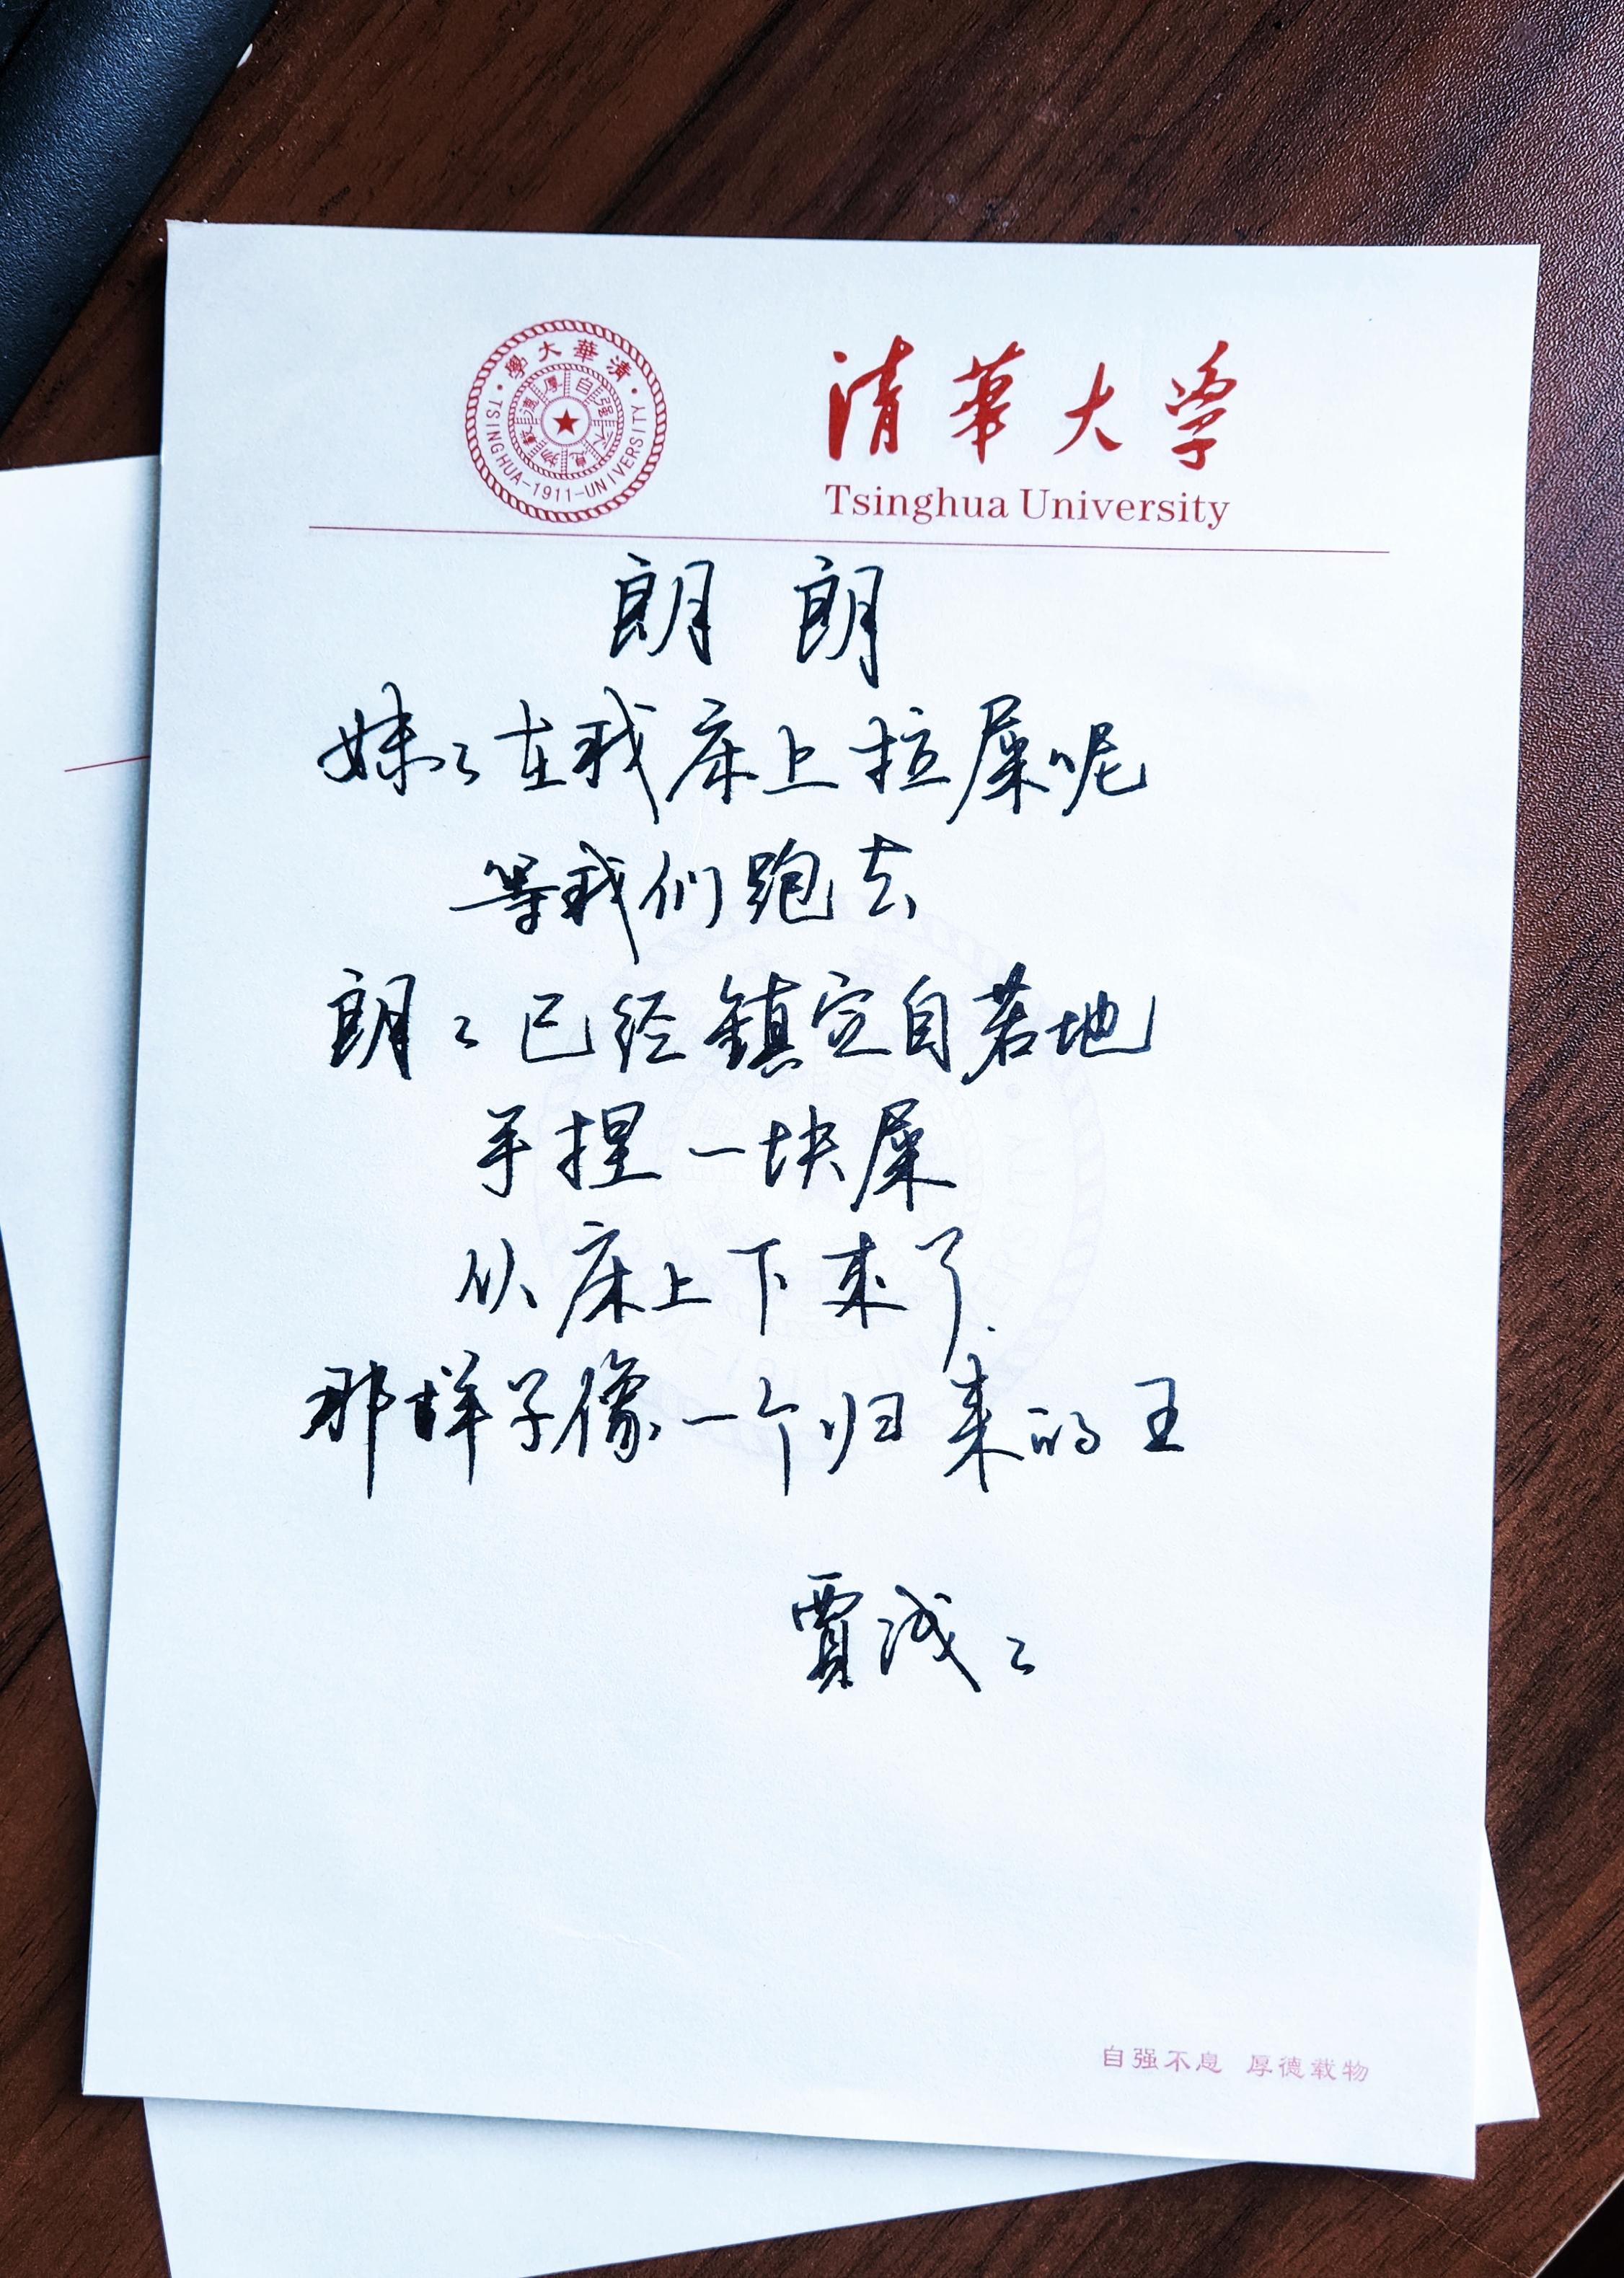 清華大學
TSINGHUA-1911-UNIVERSITY
自强不息
厚德載物
清华大学
Tsinghua University
朗 朗
妹々在我床上拉屎呢
等我们跑去
朗々已经镇定自若地
手捏一块屎
从床上下来了.
那样子像一个归来的王
賈浅々
自强不息 厚德载物